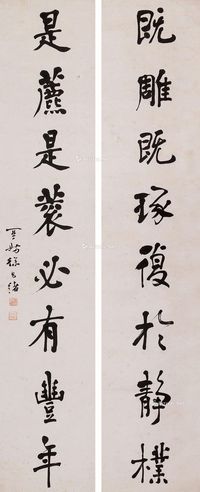 既雕既琢復於靜樸
是藨是蓘必有豐年